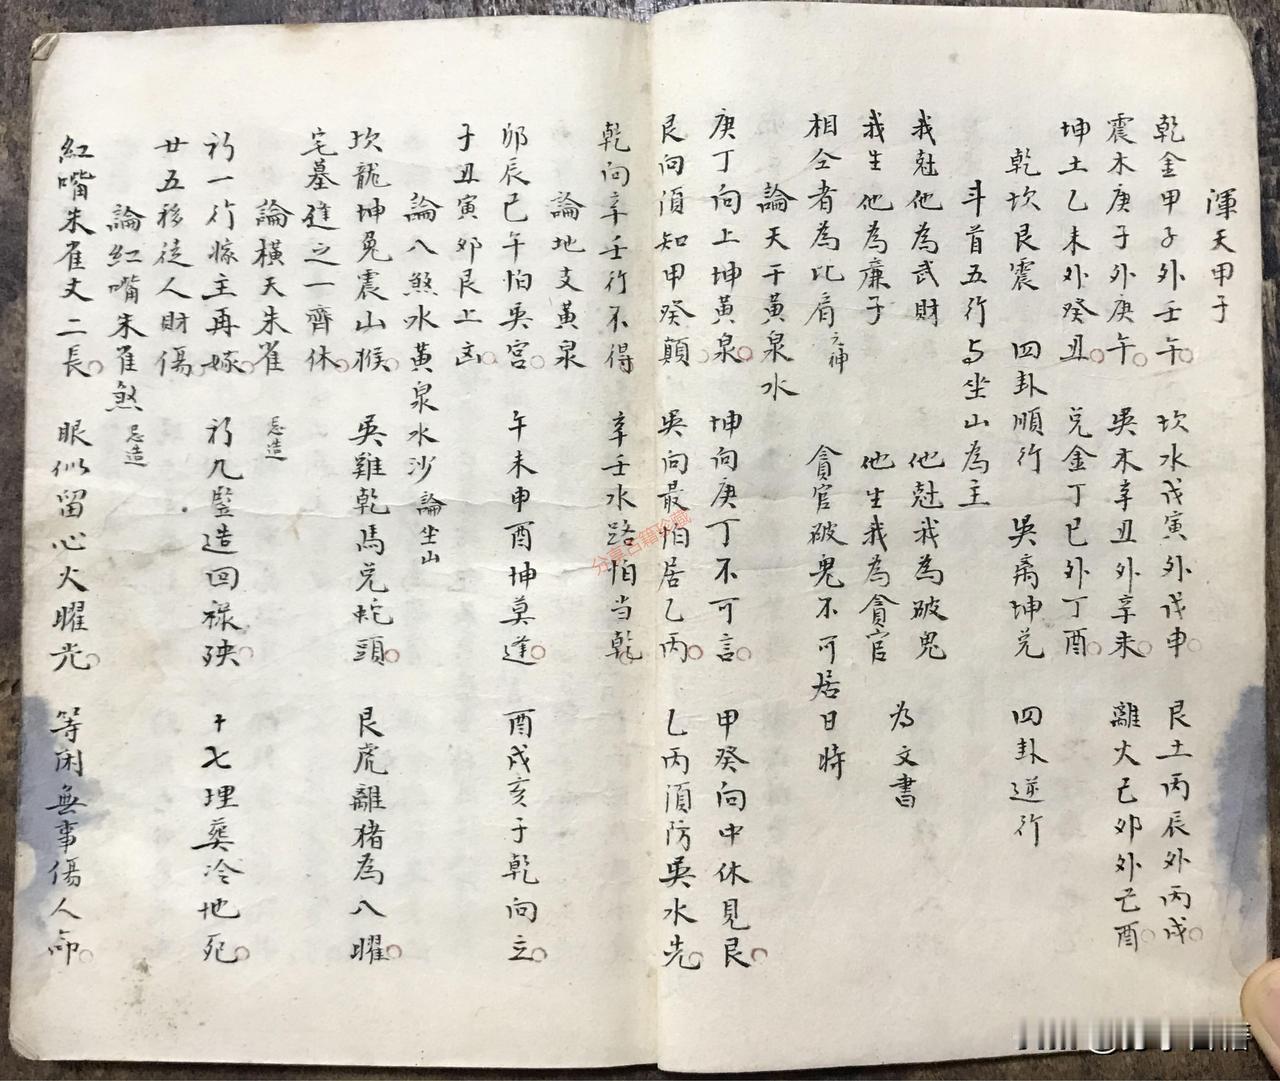 渾天甲子
乾金甲子外壬午 坎水戊寅外戊申 艮土丙辰外丙戌
震木庚子外庚午 吳木辛丑外辛未 離火己卯外己酉
坤土乙未外癸丑 兌金丁巳外丁酉
乾坎艮震 四卦順行 吳离坤兌 四卦逆行
斗首五行与坐山為主
我尅他為武財 他尅我為破鬼
我生他為廉子 他生我為貪官 為文書
相仝者為比肩 元神 貪官破鬼不可居日時
論天干黃泉水
庚丁向上坤黃泉 坤向庚丁不可言 甲癸向中休見艮
艮向須知甲癸顛 吳向最怕居乙丙 乙丙須防吳水先
乾向辛壬行不得 辛壬水路怕当乾
論地支黃泉
卯辰巳午怕吳宮 午未申酉坤莫逢 酉戌亥子乾向立
子丑寅卯艮上凶
論八煞水黃泉水沙 論坐山
坎龍坤兔震山猴 吳雞乾馬兌蛇頭 艮虎離猪為八曜
宅墓逢之一齊休
論橫天朱雀 忌造
初一行嫁主再嫁 初九豎造回祿殃 十七埋葬冷地死
廿五移徒人財傷
論紅嘴朱雀煞 忌造
紅嘴朱雀丈二長 眼似留心火曜光 等闲無事傷人命
分享古籍珍藏